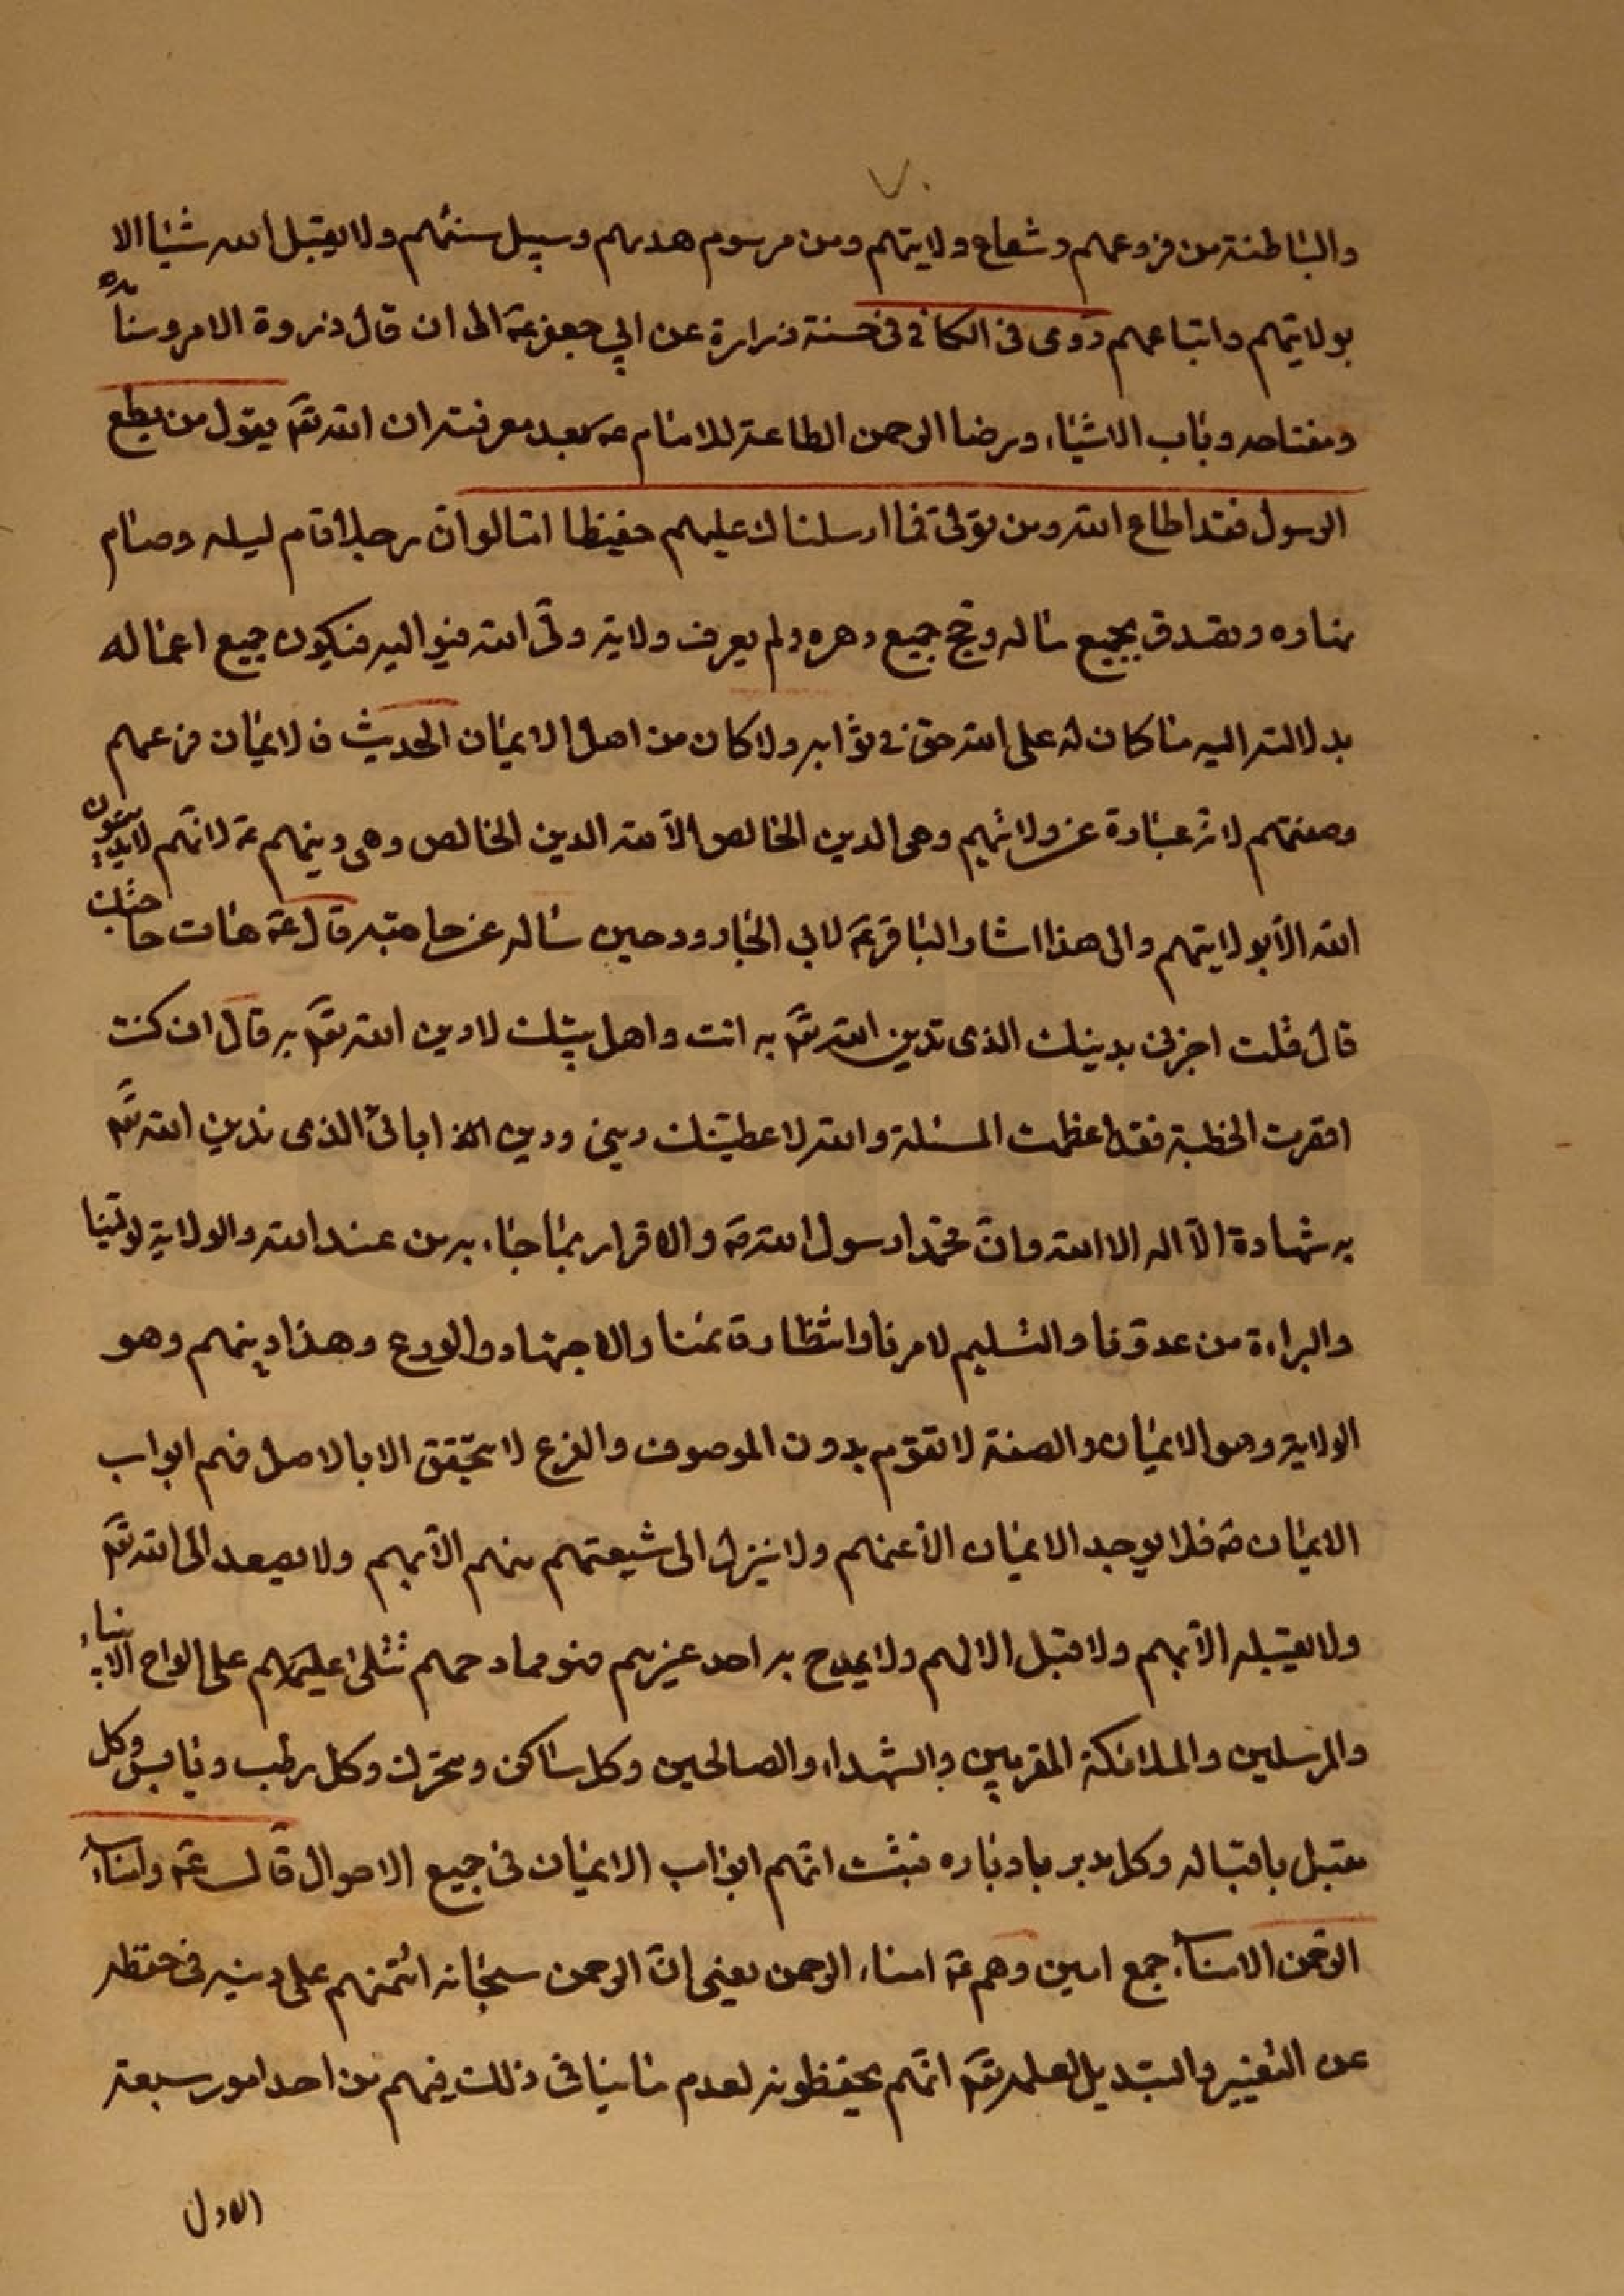 ٧٠
والباطنة من فروعهم وشعاع ولايتهم ومن مرسوم هديهم وسبيل سنتهم ولا يقبل الله شيئا الا
بولايتهم واتباعهم روى فى الكافي فى حسنة زرارة عن ابي جعفر عه الى ان قال ذروة الامر وسنامه
ومفتاحه وباب الاشياء ورضا الرحمن الطاعة للامام عه بعد معرفته ان الله تعم يقول من يطع
الرسول فقد اطاع الله ومن تولى فما ارسلناك عليهم حفيظا اما لو ان رجلا قام ليله وصام
نهاره وتصدق بجميع ماله وحج جميع دهره ولم يعرف ولاية ولى الله فيواليه فيكون جميع اعماله
بدلالته اليه ما كان له على الله حق فى ثوابه ولا كان من اهل الايمان الحديث فالايمان فرعهم
وصفتهم لانه عبارة عن ولايتهم وهى الدين الخالص الا لله الدين الخالص وهى دينهم عه لانهم لا يدينون
الله الا بولايتهم والى هذا اشار الباقر عه لابى الجارود حين ساله عن حاجته قال عه هات حاجتك
قال قلت اخبرنى بدينك الذى تدين الله تعم به انت واهل بيتك لادين الله تعم به قال ان كنت
اقصرت الخطبة فقد اعظمت المسئلة والله لاعطيتك دينى ودين ابائى الذى ندين الله تعم
به شهادة الا اله الا الله وان محمدا رسول الله صه والاقرار بما جاء به من عند الله والولاية لولينا
والبراءة من عدونا والتسليم لامرنا وانتظار قائمنا والاجتهاد والورع وهذا دينهم وهو
الولاية وهو الايمان والصفة لا تقوم بدون الموصوف والفرع لا يتحقق الا بالاصل فهم ابواب
الايمان فلا يوجد الايمان الا عنهم ولا ينزل الى شيعتهم منهم الا بهم ولا يصعد الى الله تعم
ولا يقبله الا بهم ولا قبل الا لهم ولا يمدح به احد غيرهم فهو ممادحهم تتلى عليهم على الواح الانبياء
والمرسلين والملائكة المقربين والشهداء والصالحين وكل ساكن ومتحرك وكل رطب ويابس وكل
مقبل باقباله وكل مدبر بادباره فثبت انهم ابواب الايمان فى جميع الاحوال قال عه وامناء
الرحمن الامناء جمع امين وهم عه امناء الرحمن يعنى ان الرحمن سبحانه ائتمنهم على دينه فى حفظه
عن التغيير والتبديل لعلمه تعم انهم يحفظونه لعدم ما ينافى ذلك فيهم من احد امور سبعة
الاول